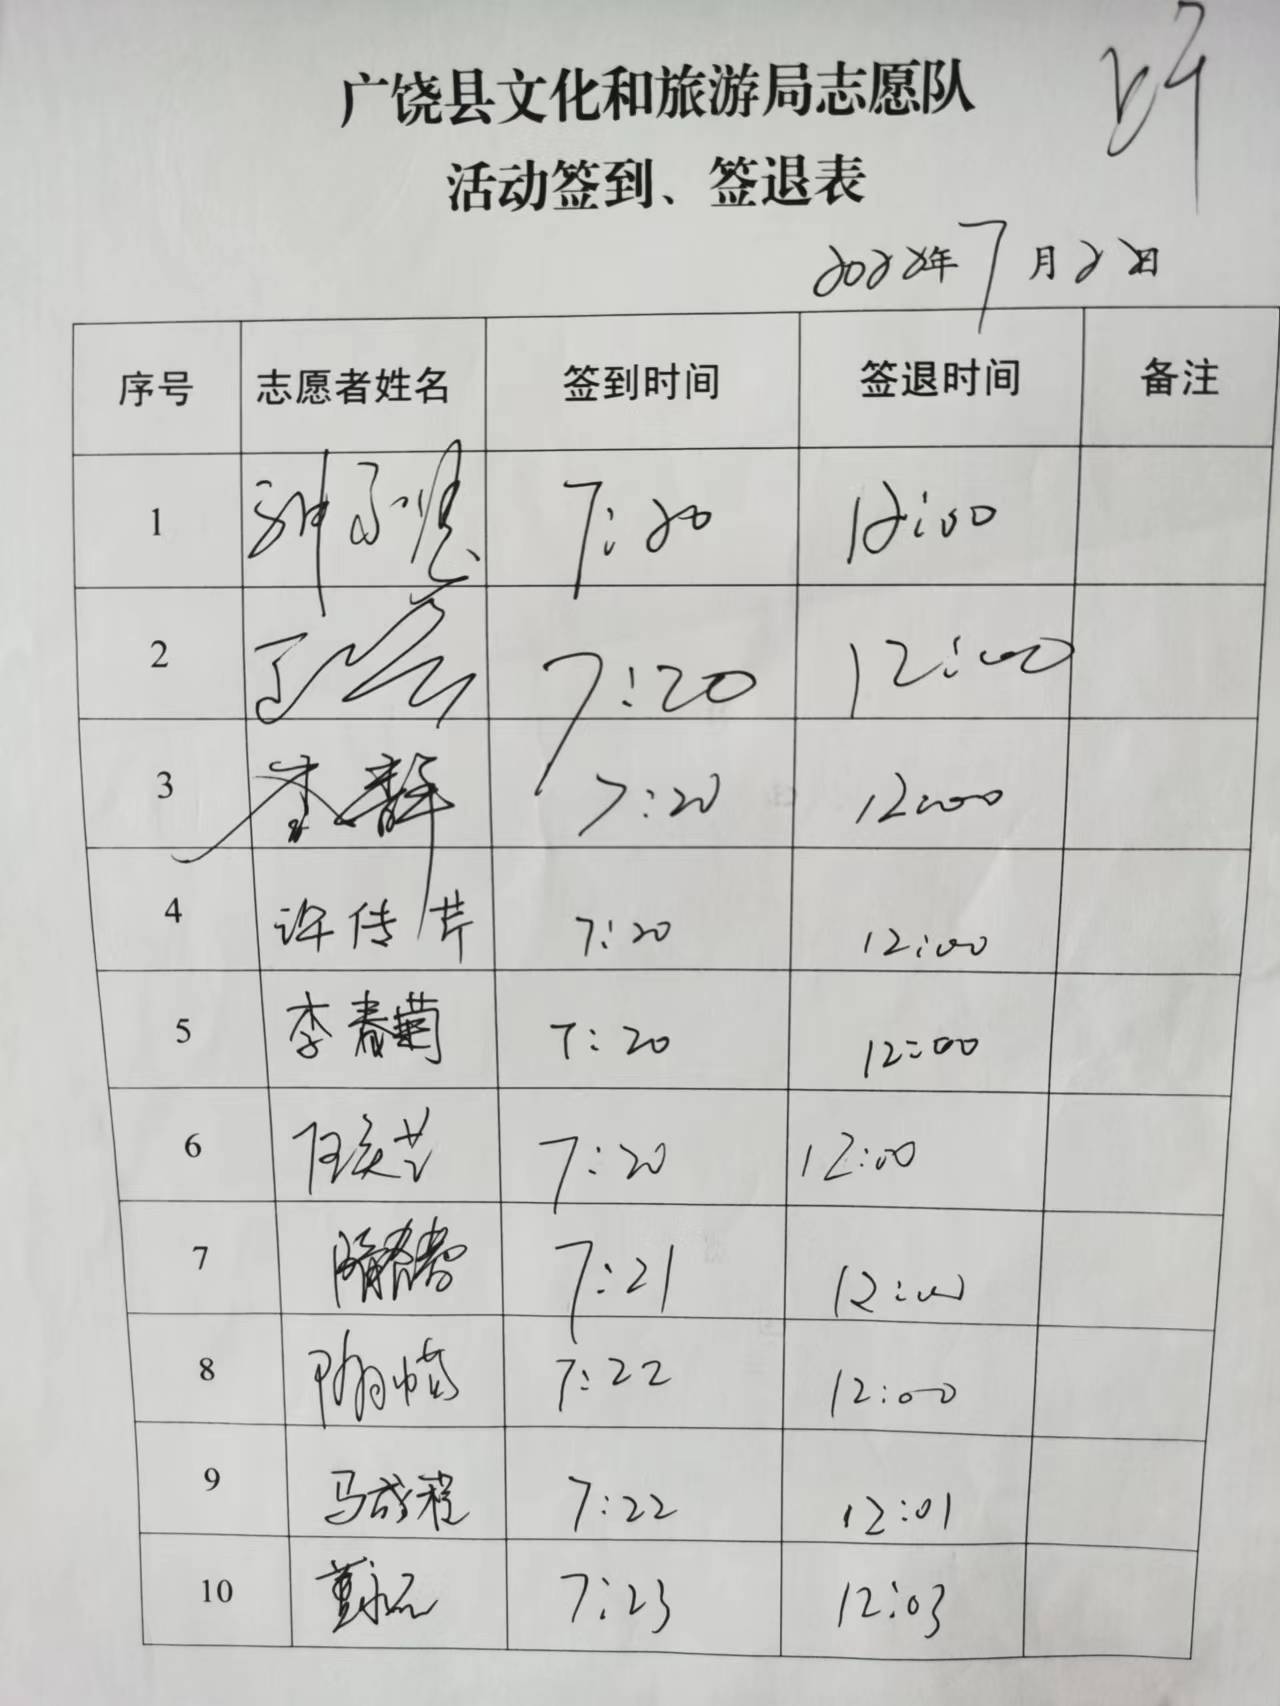 广饶县文化和旅游局志愿队
活动签到、签退表
2022年7月22日
序号 志愿者姓名 签到时间 签退时间 备注
1 7:20 12:00
2 7:20 12:00
3 李静 7:20 12:00
4 许传芹 7:20 12:00
5 李春菊 7:20 12:00
6 7:20 12:00
7 7:21 12:00
8 7:22 12:00
9 马成程 7:22 12:01
10 董永 7:23 12:03